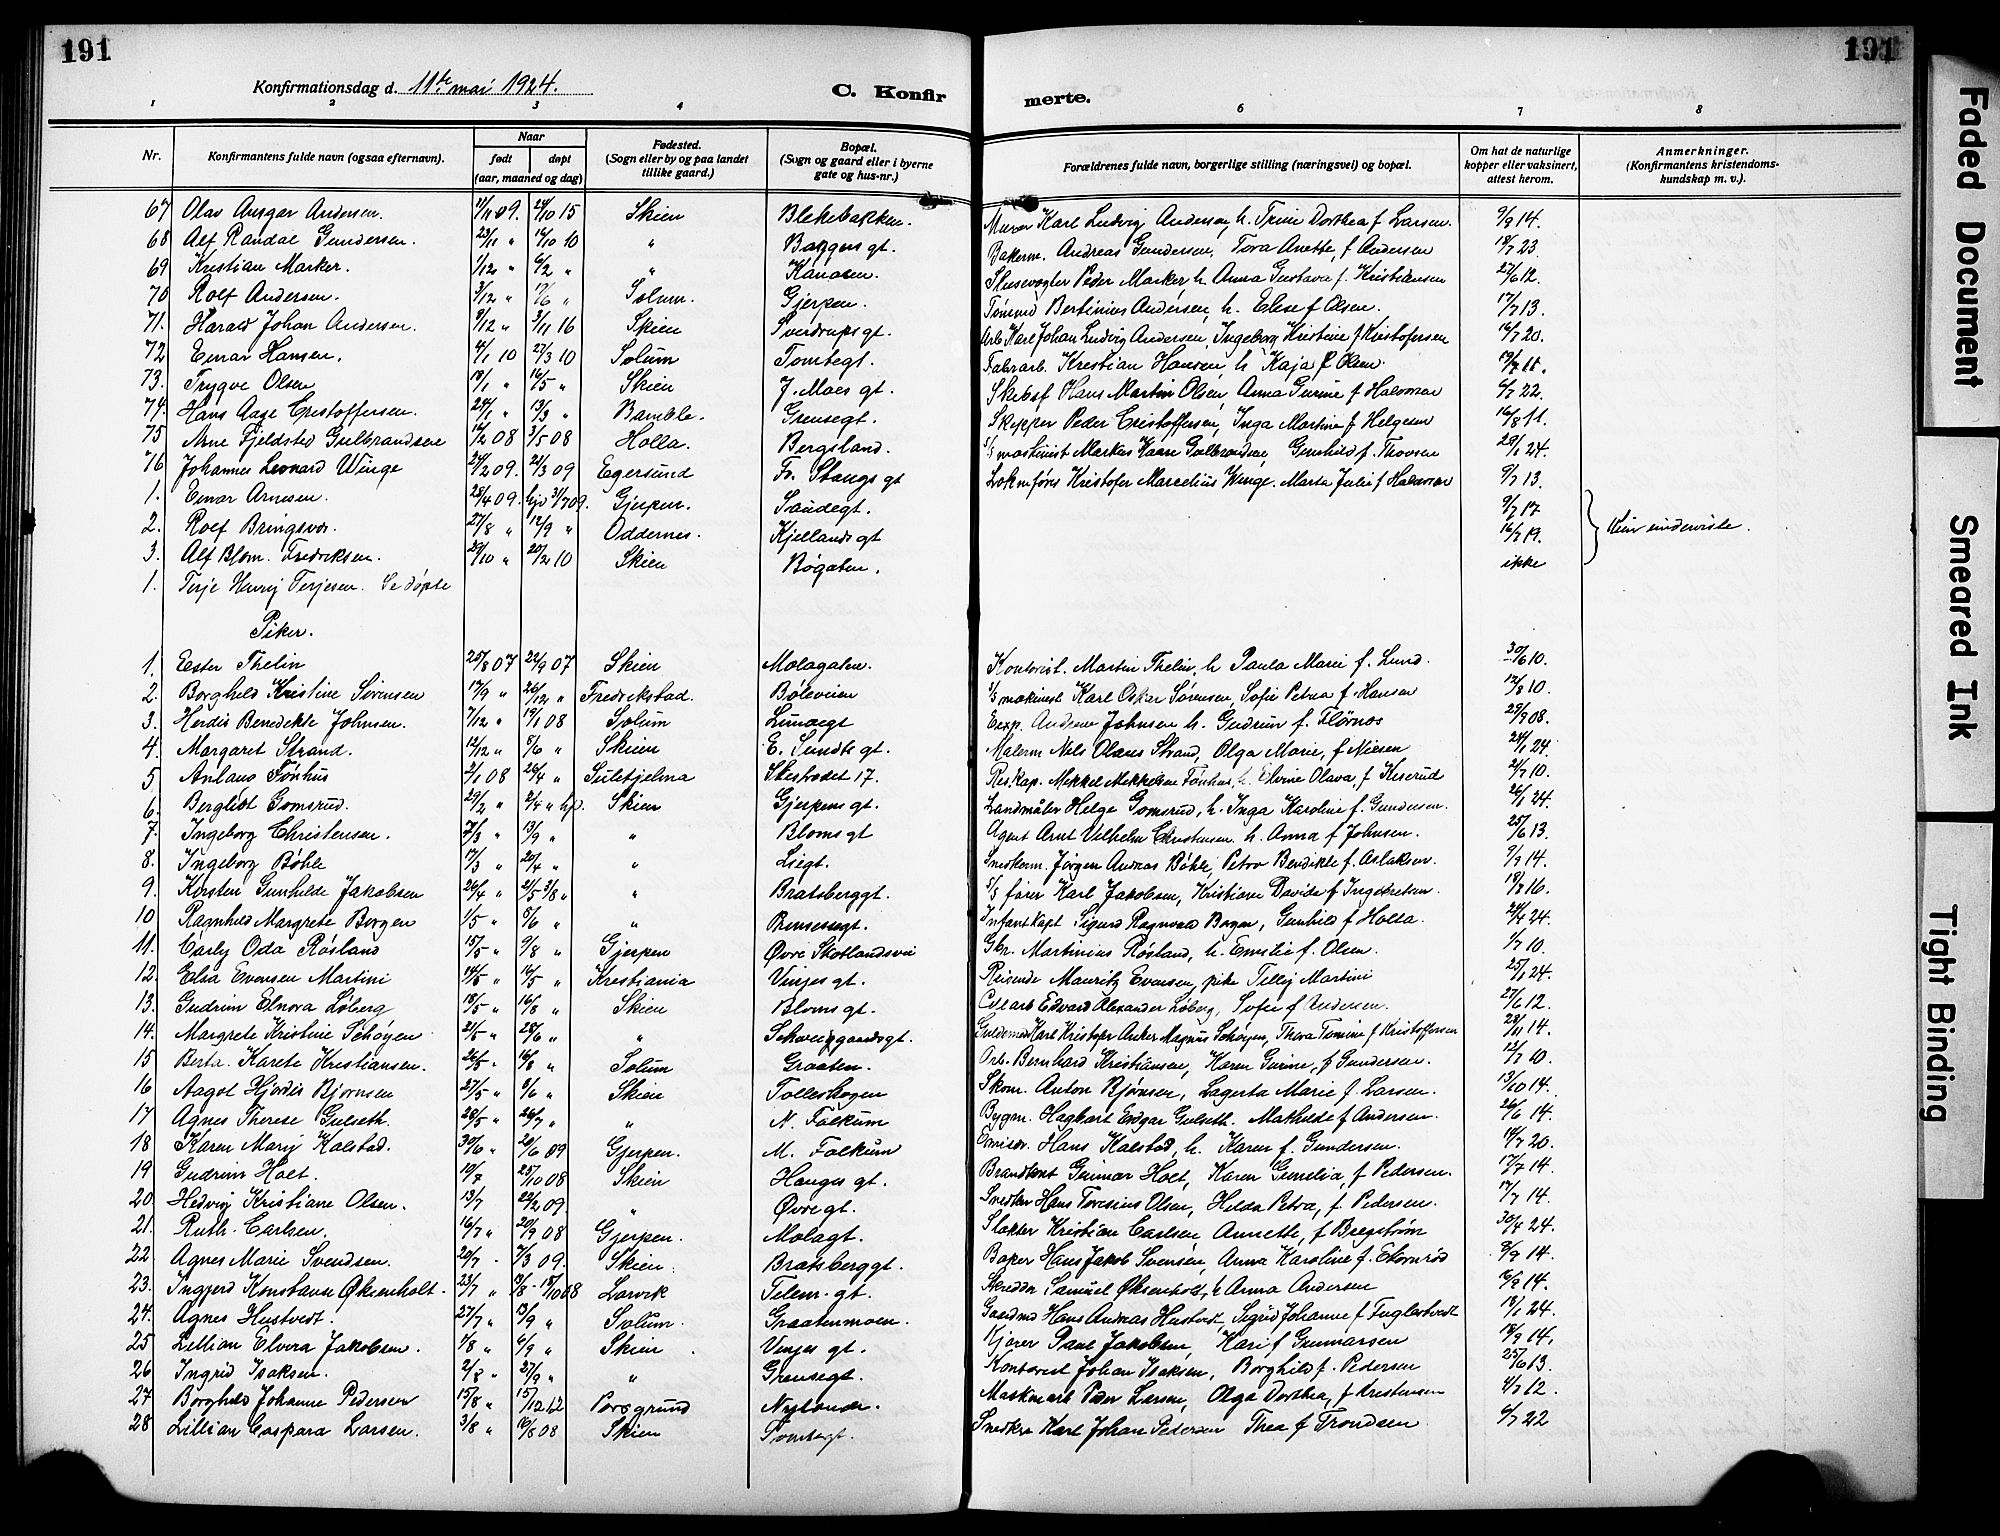 191
191
Konfirmationsdag d. 11te mai 1924.
C. Konfir
merte.
1 2 3 4 6 7 8
Nr.
Konfirmantens fulde navn (ogsaa efternavn).
Naar
født døpt
(aar, maaned og dag)
Fødested.
(Sogn eller by og paa landet
tillike gaard.)
Bopæl.
(Sogn og gaard eller i byerne
gate og hus-nr.)
Forældrenes fulde navn, borgerlige stilling (næringsvei) og bopæl.
Om hat de naturlige
kopper eller vaksinert,
attest herom.
Anmerkninger.
(Konfirmantens kristendoms-
kundskap m. v.).
67 Olav Ansgar Andersen. 24/10 15 Skien Blekebakken. Murer Karl Ludvig Andersen, h. Trine Dorthea f Larsen. 9/9 14.
68 Alf Randal Gundersen. 23/11 " 16/10 10 " Baggers gt. Bakerm. Andreas Gundersen, Tora Anette, f Andersen 23
69 Kristian Marker. 1/12 " 6/2 " " Kanalen. Slusevogter Peder Marker h Anna Gustava f. Kristiansen 27/6 12.
70 Rolf Andersen. 3/12 " 17/6 " Solum. Gjerpen. Tømmd Bertinius Andersen, h. Elise f Olsen. 17/7 13.
71. Harald Johan Andersen. 9/12 " 3/11 16 Skien Sverdrups gt. Arb Karl Johan Ludvig Andersen, Ingeborg Kristine f Kristofersen 16/7 20.
72 Einar Hansen. 4/1 10 27/3 10 Solum Tomtegt. Fabrarb. Kristian Hansen, h Kaja f Olsen 11.
73. Trygve Olsen 18/1 " 16/5 " Skien J. Moes gt. Hans Martin Olsen, Anna Gurine f Halvorsen 6/7 22.
74. Hans Aage Cristoffersen. 24/1 " 13/3 " Bamble. Grensegt. Skipper Peder Cristoffersen, Inga Martine f Helgesen 16/8 11.
75 Arne Fjeldsted Gulbrandsen 16/2 08 3/5 08 Holla. Bergsland. s/s maskinist Markus Kaare Gulbrandsen, Gunhild f. Thovsen 29/1 24.
76 Johannes Leonard Winge 24/2 09. 21/3 09 Egersund Fr. Stangs gt Lokomføres Kristofer Marcelius Winge. Marta Julie f Halvorsen 9/7 13.
1. Einar Arnesen. 25/4 09. hjd 31/7 09. Gjerpen. Saudegt. 9/7 17
2. Rolf Bringsvor. 27/8 " 12/9 " Oddernes. Kjellands gt 16/7 19.
3. Alf Blom. Fredriksen. 29/10 " 20/2 10 Skien Bøgaten. ikke
Kun underviste.
1. Terje Henrij Terjesen. Se døpte
Piker.
1. Ester Thelin 25/8 07 22/9 07 Skien Molagaten. Kontorist. Martin Thelin, h Paula Marie f. Lund. 30/6 10.
2. Borghild Kristine Sørensen 17/9 " 26/12 " Fredrikstad. Bøleveien s/s maskinist Karl Oskar Sørensen, Sofie Petrea f. Hansen 12/8 10.
3. Herdis Benedikte Johnsen. 7/12 " 19/1 08 Solum Linaaegt Eexp. Andrew Johnsen h. Gudrun f. Flørnes 29/9 08.
4. Margaret Strand. 12/12 " 8/6 " Skien E. Sundts gt. Malerm Nils Olaus Strand, Olga Marie, f Nilsen 24/1 24.
5. Anlaug Fønhus 2/1 08 26/4 " Sulitjelma Skistredet 17. Res.kap. Mikkel Mikkelsen Fønhus, h. Elvine Olava, f. Kiserud 2/7 10.
6. Bergliot Gomsrud. 29/2 " 2/4 " hp. Skien Gjerpens gt. Landmåler Helge Gomsrud, h. Inga Karoline f Gundersen. 26/1 24.
7. Ingeborg Christensen. 7/3 " 13/9 " " Bloms gt Agent Arnt Vilhelm Christensen h. Anna f Johnsen. 25/6 13.
8. Ingeborg Bøhle 17/3 " 20/4 " " Liegt. Snedkerm. Jørgen Andreas Bøhle, Petra Bendikte f. Aslaksen. 9/9 14.
9. Kirsten Gunhilde Jakobsen 26/4 " 21/5 3/8 " " Bratsberggt. s/s fører Karl Jakobsen, Kristiane Davida f Ingebretsen. 16.
10 Ragnhild Margrete Borgen 1/5 " 8/6 " " Prinsensgt. Infantkapt Sigurd Ragnvald Borgen, Gunhild f Holta. 24/4 24.
11. Carly Oda Røsland 15/5 " 9/8 " Gjerpen Øvre Skotlandsvei Gbr. Martinius Røsland, h. Emilie f. Olsen. 1/7 10.
12. Elsa Evensen Martini 14/5 " 16/5 " Kristiania Vinjes gt. Reisende Mauritz Evensen, pike Tilly Martini 25/1 24.
13. Gudrun Elnora Løberg 18/5 " 16/8 " Skien Bloms gt. Cell.arb Edvard Alexander Løberg, Sofie f Andersen. 27/6 12.
14. Margrete Kristine Schøyen 21/5 " 28/6 " " Schweiggaardsgt. Guldsmed Karl Kristofer Anker Magnus Schøyen, Thora Tomine f Kristoffersen 28/11 14.
15 Berta. Karete Kristiansen. 26/5 " 16/8 " Solum Graaten. Arb. Bernhard Kristiansen, Karen Gurine, f Gundersen. 12/7 10.
16 Aagot Hjørdis Bjørnsen 27/5 " 8/6 " Skien Tollershogen Skom. Anton Bjørnsen, Lagerta Marie f. Larsen. 13/10 14.
17. Agnes Therese Gulseth. 28/5 " 26/7 " " N. Falkum Bygm. Hagbart Edgar Gulseth. Mathilde f Andersen. 26/6 14.
18 Karen Marij Kalstad. 30/6 " 20/6 09 Gjerpen. M. Falkum Emissær. Hans Kalstad, h. Karen f. Gundersen. 14/7 20.
19 Gudrun Holt. 10/7 25/10 08 Skien Hauges gt. Brandkonst Gunnar Holt, Karen Gunelia, f Pedersen. 17/7 14.
20 Hedvig Kristiane Olsen. 13/7 22/2 09. " Øvre gt. Snedker Hans Toresius Olsen, Helda Petra, f Pedersen. 17/7 14.
21. Ruth. Carlsen. 16/7 " 20/9 08 Gjerpen. Molagt. Slakter Kristian Carlsen, Annette, f Bregstrøm 30/4 24.
22. Agnes Marie Svendsen. 20/7 - 7/3 09. Skien. Bratsberggt. Baker Hans Jakob Svensen, Anna Karoline f. Ekornrød 8/9 14.
23. Ingjerd Konstanse Øksenholt. 23/7 " Larvik Telem. gt. Skreddr. Samuel Øksenholt, h Anna Andersen 14.
24. Agnes Hustvedt. 27/7 " 13/9 " Solum. Graatenmoen. Gaardmd Hans Andreas Hustvedt, Sigrid Johanne f Fuglestvedt 18/1 24.
25 Lillian Elvira Jakobsen. 1/8 " 6/9 " Skien. Vinjes gt. Kjører Paul Jakobsen, Kari f Gunnarsen 14.
26 Ingrid Isaksen. 2/8 " 27/9 " " Grensegt. Kontorist Johan Isaksen, Borghild f. Pedersen 25/6 13.
27 Borghild Johanne Pedersen 15/8 " 15/12 12 Porsgrund Nylænde. Maskinarb Peder Larsen, Olga Dorthea, f Kristensen 4/7 12.
28 Lillian Caspara Larsen. 3/8 " 16/8 08 Skien Tomtegt. Snedker Karl Johan Pedersen Thea f Trondsen 6/7 22
Faded Document
Smeared Ink
Tight Binding